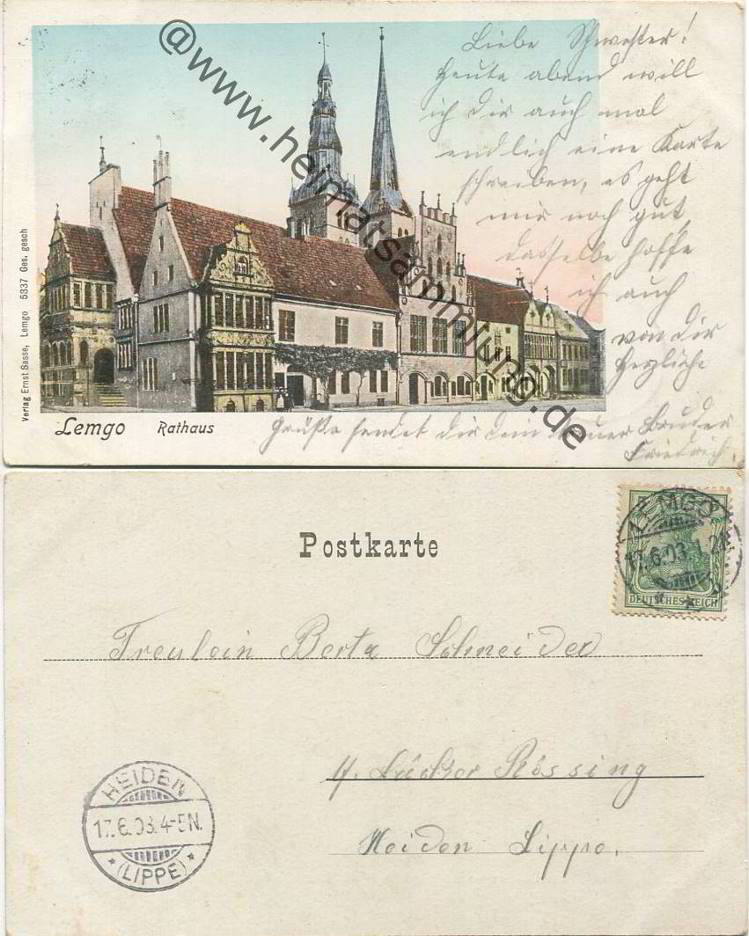 Liebe Schwester!
Heute abend will
ich dir auch mal
endlich eine Karte
schreiben, es geht
mir noch gut,
dasselbe hoffe
ich auch
von dir
Herzliche
Grüße sendet dir dein treuer Bruder
Friedrich.
@www.heimatsammlung.de
Verlag Ernst Sasse, Lemgo 5337 Ges. gesch
Lemgo Rathaus
Postkarte
LEMGO
17.6.03.
DEUTSCHES REICH
Freulein Berta Schneider
Rössing
Heiden Lippe.
HEIDEN
17.6.03.4-5N.
* (LIPPE) *